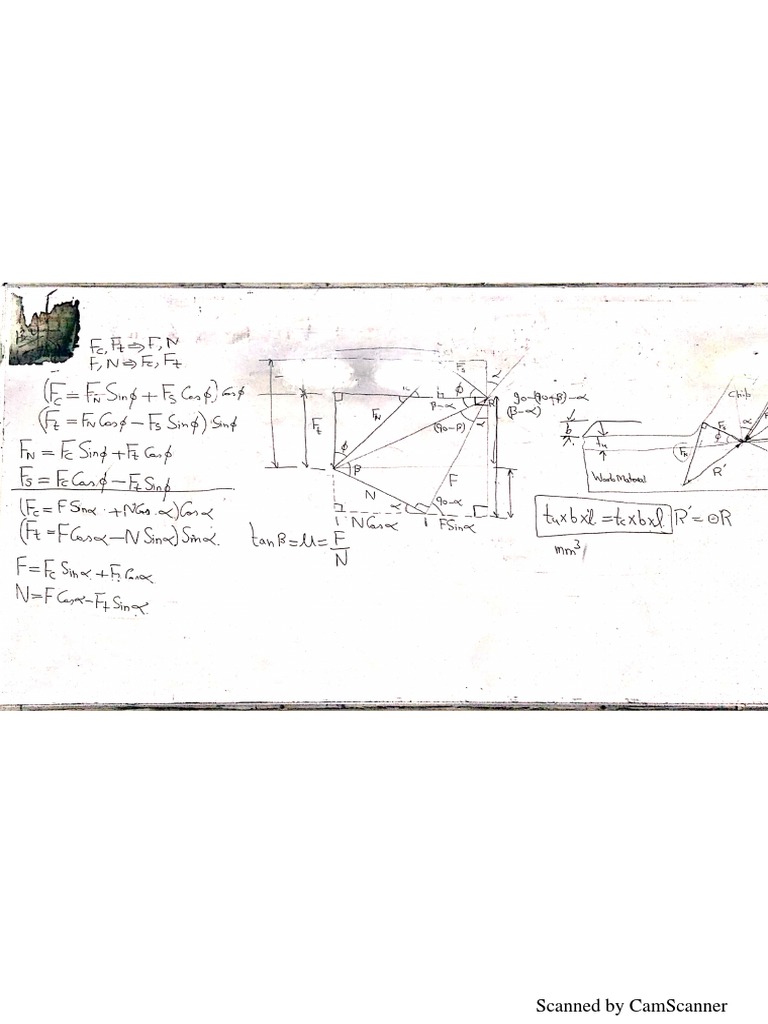 F_c, F_t ⇒ F, N
F, N ⇒ F_c, F_t
(F_c = F_N Sinϕ + F_S Cosϕ) Cosϕ
(F_t = F_N Cosϕ − F_S Sinϕ) Sinϕ
F_N = F_c Sinϕ + F_t Cosϕ
F_S = F_c Cosϕ − F_t Sinϕ
(F_c = F Sinα + N Cosα) Cosα
(F_t = F Cosα − N Sinα) Sinα
F = F_c Sinα + F_t Cosα
N = F Cosα − F_t Sinα
F_S
α
ϕ
β−α
R
90−(90+β)−α
(β−α)
F_t
F_N
(90−β)
α
ϕ
β
F
N
90−α
α
N Cosα
F Sinα
tanβ = μ = F/N
Chip
α
b
t_u
F_S
ϕ
F_N
R'
Work Material
t_u×b×l = t_c×b×l
R' = ⊙R
mm³
Scanned by CamScanner